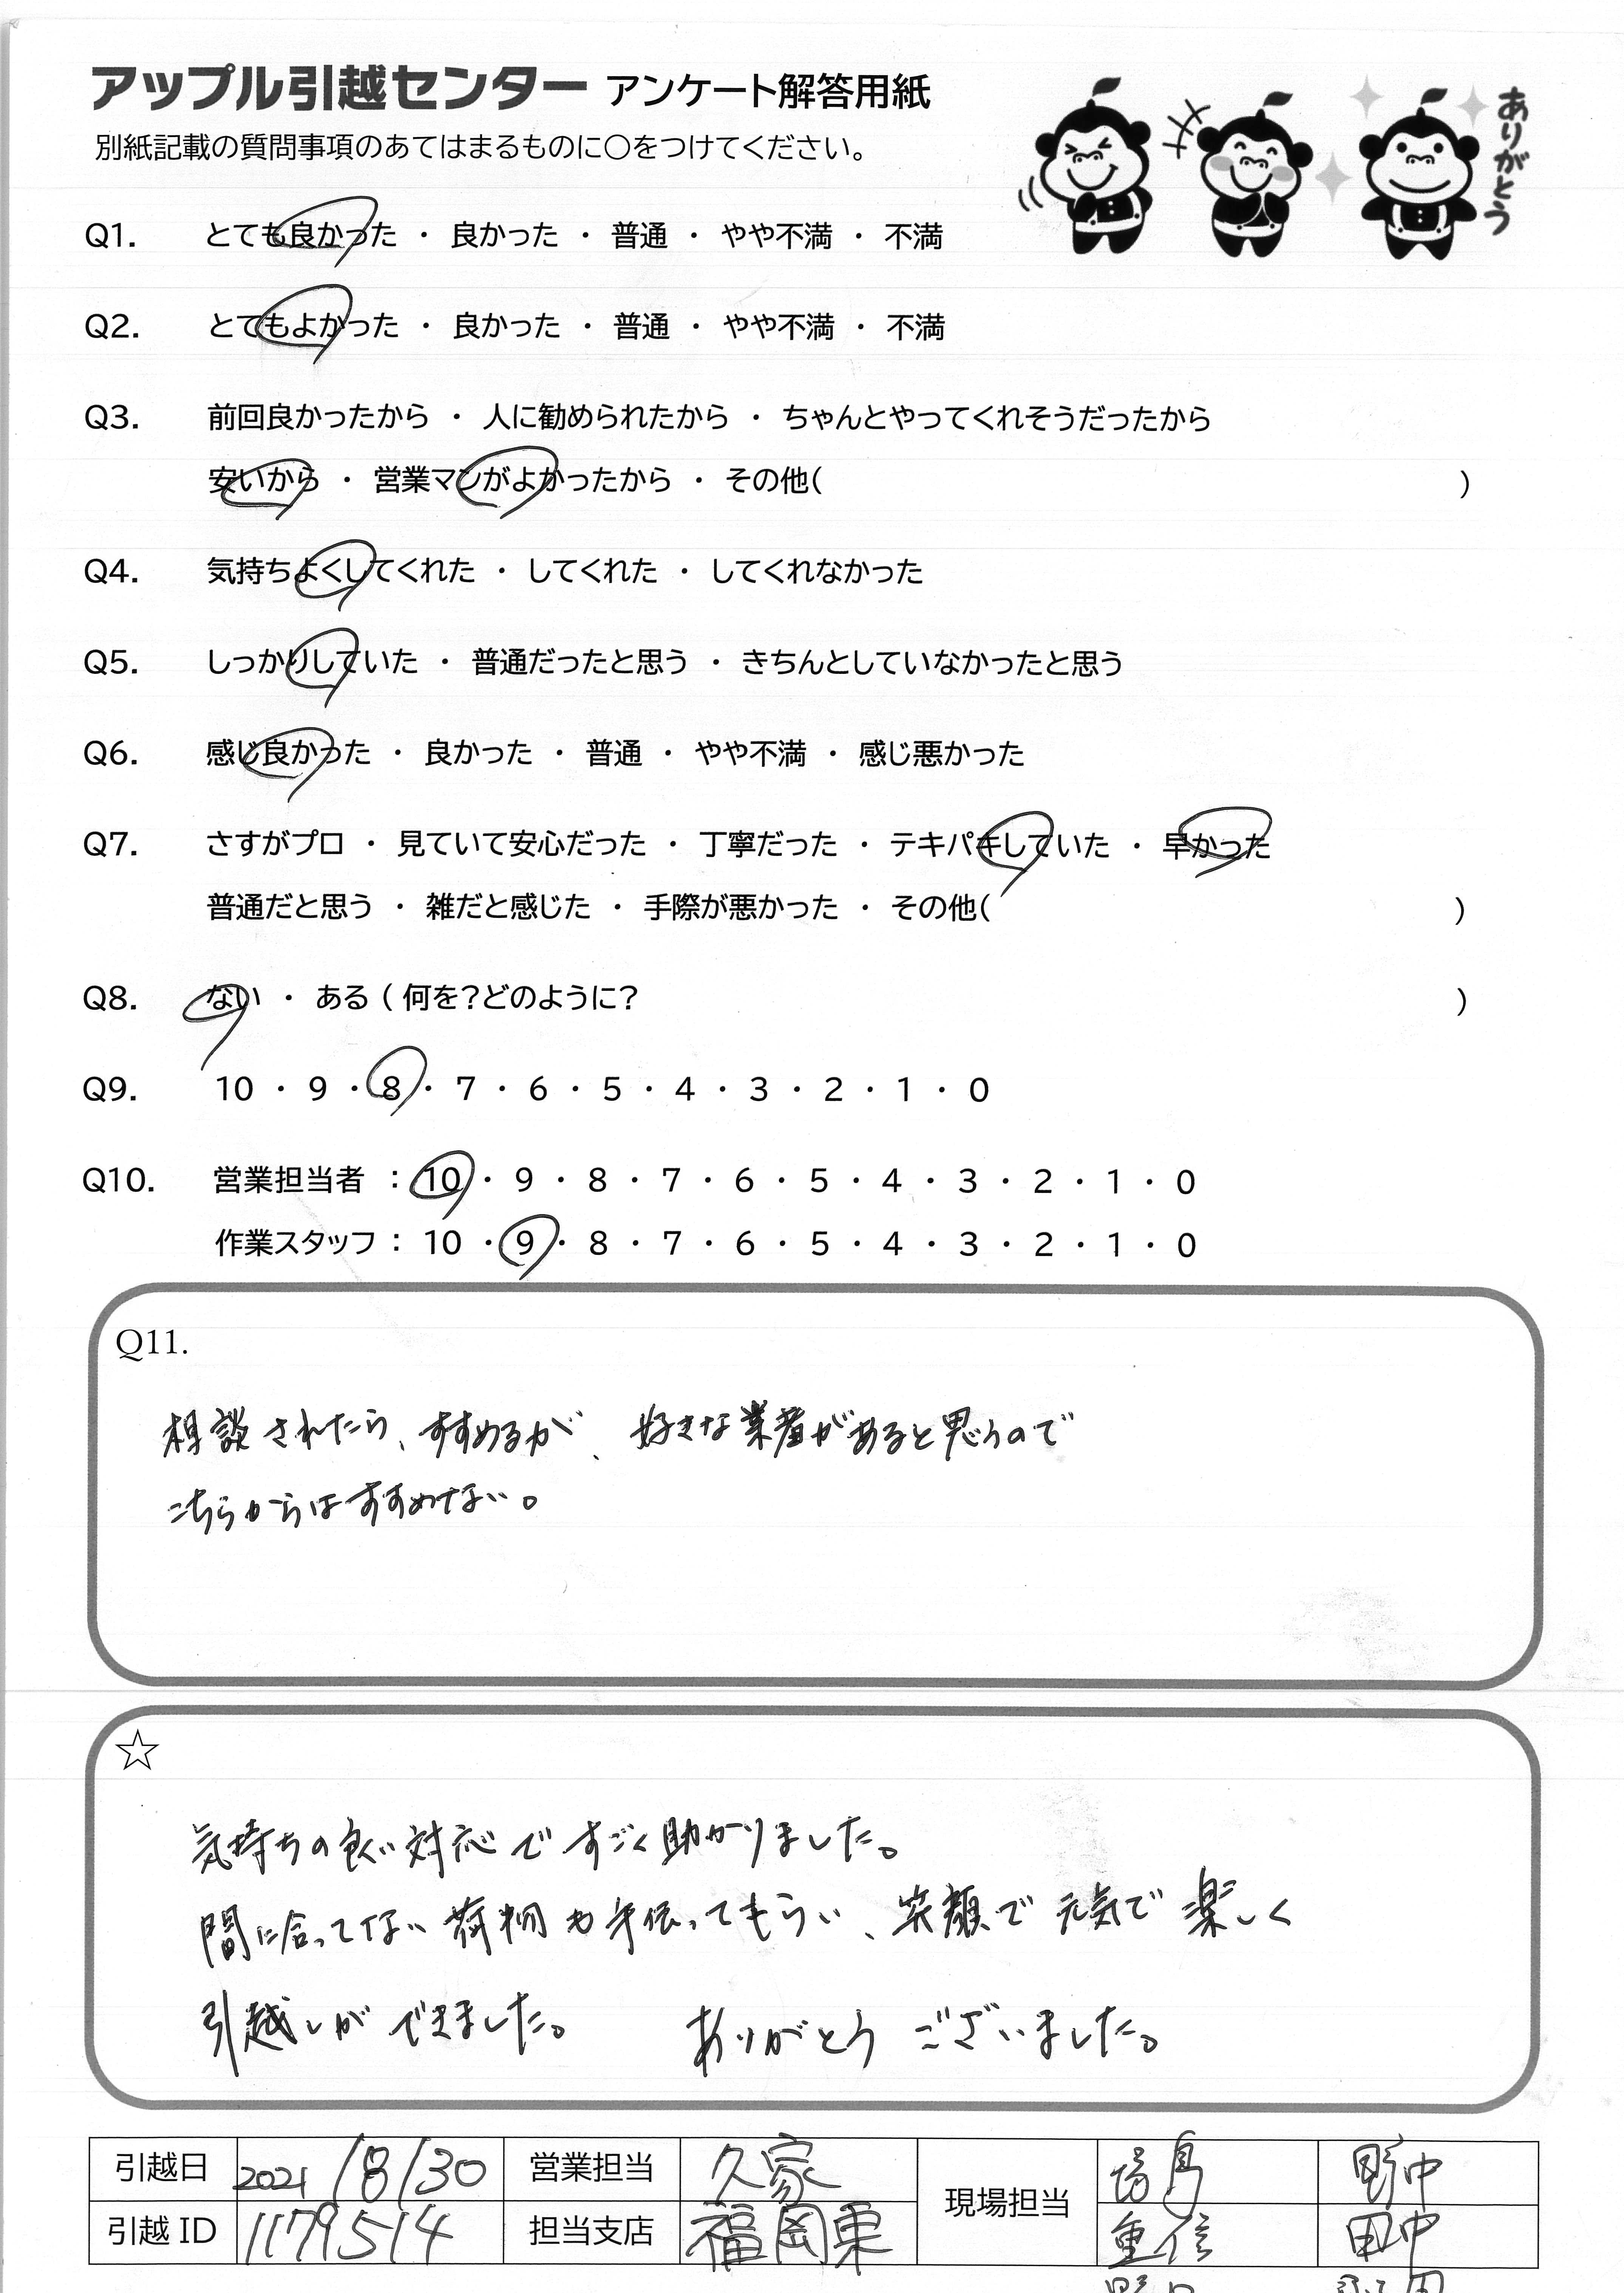 アップル引越センター アンケート解答用紙
別紙記載の質問事項のあてはまるものに○をつけてください。
ありがとう
Q1. とても良かった ・ 良かった ・ 普通 ・ やや不満 ・ 不満
Q2. とてもよかった ・ 良かった ・ 普通 ・ やや不満 ・ 不満
Q3. 前回良かったから ・ 人に勧められたから ・ ちゃんとやってくれそうだったから
安いから ・ 営業マンがよかったから ・ その他( )
Q4. 気持ちよくしてくれた ・ してくれた ・ してくれなかった
Q5. しっかりしていた ・ 普通だったと思う ・ きちんとしていなかったと思う
Q6. 感じ良かった ・ 良かった ・ 普通 ・ やや不満 ・ 感じ悪かった
Q7. さすがプロ ・ 見ていて安心だった ・ 丁寧だった ・ テキパキしていた ・ 早かった
普通だと思う ・ 雑だと感じた ・ 手際が悪かった ・ その他( )
Q8. ない ・ ある ( 何を?どのように? )
Q9. 10 ・ 9 ・ 8 ・ 7 ・ 6 ・ 5 ・ 4 ・ 3 ・ 2 ・ 1 ・ 0
Q10. 営業担当者 : 10 ・ 9 ・ 8 ・ 7 ・ 6 ・ 5 ・ 4 ・ 3 ・ 2 ・ 1 ・ 0
作業スタッフ : 10 ・ 9 ・ 8 ・ 7 ・ 6 ・ 5 ・ 4 ・ 3 ・ 2 ・ 1 ・ 0
Q11.
相談されたら、すすめるが、好きな業者があると思うので
こちらからはすすめない。
☆
気持ちの良い対応ですごく助かりました。
間に合ってない荷物も手伝ってもらい、笑顔で元気で楽しく
引越しができました。 ありがとうございました。
引越日 2021/8/30 営業担当 久家 現場担当 野中
引越 ID 1179514 担当支店 福岡東 重信 田中